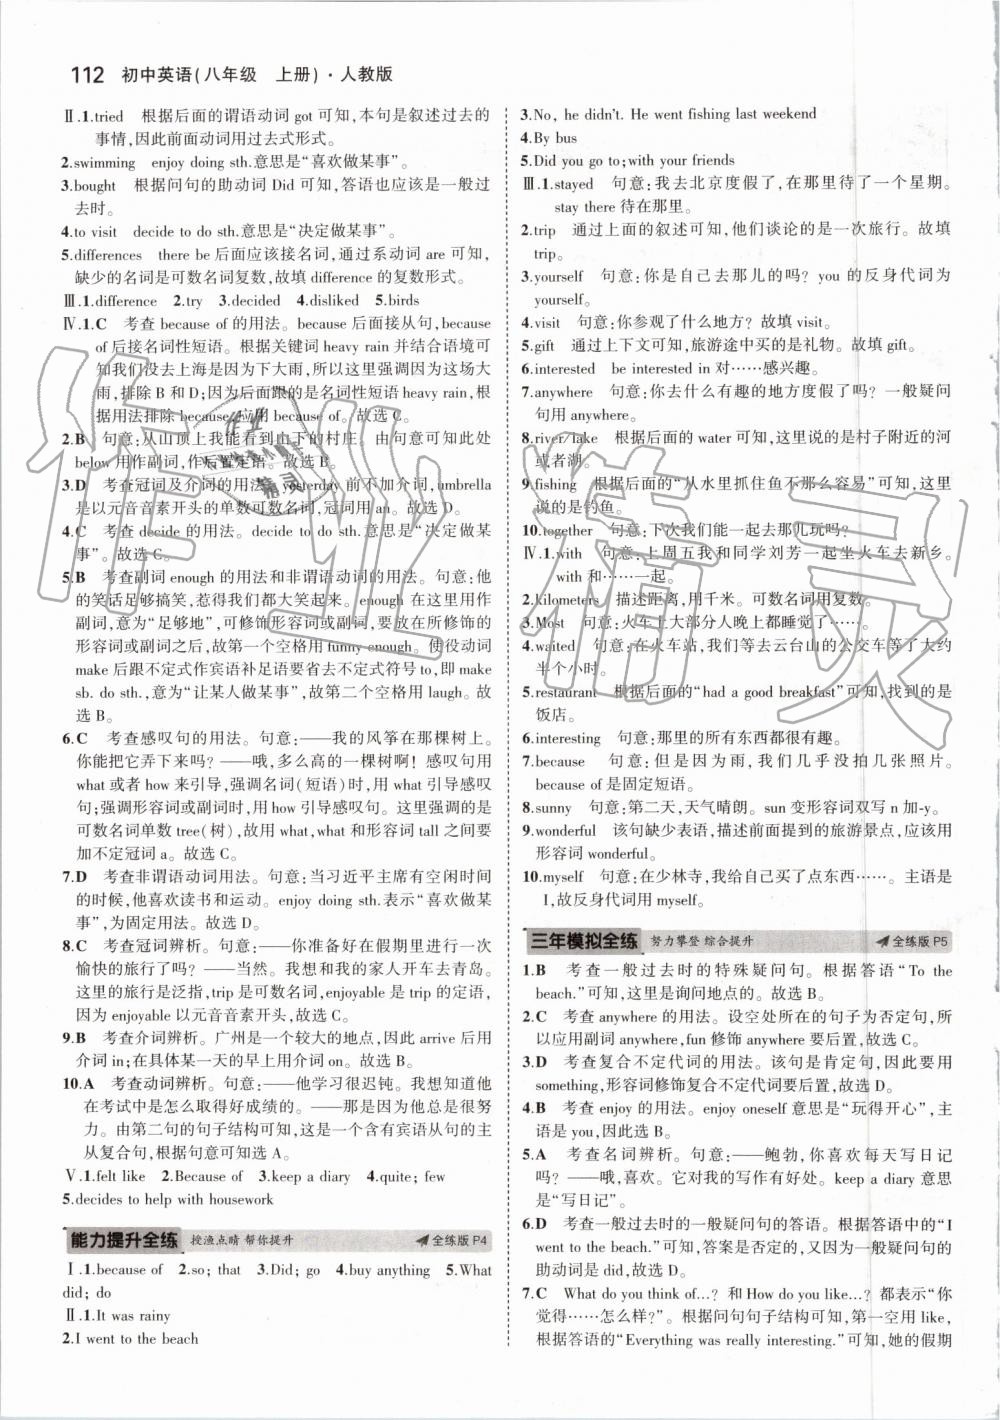 112 初中英语(八年级 上册)·人教版
Ⅱ.1.tried 根据后面的谓语动词 got 可知,本句是叙述过去的
事情,因此前面动词用过去式形式。
2.swimming enjoy doing sth.意思是“喜欢做某事”。
3.bought 根据问句的助动词 Did 可知,答语也应该是一般过
去时。
4.to visit decide to do sth.意思是“决定做某事”。
5.differences there be后面应该接名词,通过系动词 are 可知,
缺少的名词是可数名词复数,故填 difference 的复数形式。
Ⅲ.1.difference 2.try 3.decided 4.disliked 5.birds
Ⅳ.1.C 考查 because of 的用法。because 后面接从句,because
of 后接名词性短语。根据关键词 heavy rain 并结合语境可
知我们没去上海是因为下大雨,所以这里是因为这场大
雨,排除 B 和 D;因为后面跟的是名词性短语 heavy rain,根
据用法排除 because,应用 because of。故选 C。
2.B 句意:从山顶上我能看到山下的村庄。由句意可知此处
below 用作副词,作后置定语。故选 B。
3.D 考查冠词及介词的用法。yesterday 前不加介词,umbrella
是以元音音素开头的单数可数名词,冠词用 an。故选 D。
4.C 考查 decide 的用法。decide to do sth.意思是“决定做某
事”。故选 C。
5.B 考查副词 enough 的用法和非谓语动词的用法。句意:他
的笑话足够搞笑,惹得我们都大笑起来。enough 在这里用作
副词,意为“足够地”,可修饰形容词或副词,要放在所修饰的
形容词或副词之后,故第一个空格用 funny enough。使役动词
make 后跟不定式作宾语补足语要省去不定式符号 to,即 make
sb. do sth.,意为“让某人做某事”,故第二个空格用 laugh。故
选 B。
6.C 考查感叹句的用法。句意:——我的风筝在那棵树上。
你能把它弄下来吗?——哦,多么高的一棵树啊!感叹句用
what 或者 how 来引导,强调名词(短语)时,用 what 引导感叹
句;强调形容词或副词时,用 how 引导感叹句。这里强调的是
可数名词单数 tree(树),故用 what,what 和形容词 tall 之间要
加不定冠词 a。故选 C。
7.D 考查非谓语动词用法。句意:当习近平主席有空闲时间
的时候,他喜欢读书和运动。enjoy doing sth.表示“喜欢做某
事”,为固定用法。故选 D。
8.C 考查冠词辨析。句意:——你准备好在假期里进行一次
愉快的旅行了吗?——当然。我想和我的家人开车去青岛。
这里的旅行是泛指,trip 是可数名词,enjoyable 是 trip 的定语,
因为 enjoyable 以元音音素开头,故选 C。
9.B 考查介词辨析。广州是一个较大的地点,因此 arrive 后用
介词 in;在具体某一天的早上用介词 on。故选 B。
10.A 考查动词辨析。句意:——我学习很迟钝。我想知道他
在考试中是怎么取得好成绩的。——我想是因为他总是很努
力。由第二句的句子结构可知,这是一个含有宾语从句的主
从复合句,根据句意可知选 A。
Ⅴ.1.felt like 2.Because of 3.keep a diary 4.quite; few
5.decides to help with housework
能力提升全练 授渔点睛 帮你提升 全练版 P4
Ⅰ.1.because of 2.so; that 3.Did; go 4.buy anything 5.What
did; do
Ⅱ.1.It was rainy
2.I went to the beach
3.No, he didn't. He went fishing last weekend
4.By bus
5.Did you go to;with your friends
Ⅲ.1.stayed 句意:我去北京度假了,在那里待了一个星期。
stay there 待在那里。
2.trip 通过上面的叙述可知,他们谈论的是一次旅行。故填
trip。
3.yourself 句意:你是自己去那儿的吗? you 的反身代词为
yourself。
4.visit 句意:你参观了什么地方?故填 visit。
5.gift 通过上下文可知,旅游途中买的是礼物。故填 gift。
6.interested be interested in 对……感兴趣。
7.anywhere 句意:你去什么有趣的地方度假了吗?一般疑问
句用 anywhere。
8.river/lake 根据后面的 water 可知,这里说的是村子附近的河
或者湖。
9.fishing 根据后面的“从水里抓住鱼不那么容易”可知,这里
说的是钓鱼。
10.together 句意:下次我们能一起去那儿玩吗?
Ⅳ.1.with 句意:上周五我和同学刘芳一起坐火车去新乡。
with 和……一起。
2.kilometers 描述距离,用千米。可数名词用复数。
3.Most 句意:火车上大部分人晚上都睡觉了……
4.waited 句意:在火车站,我们等去云台山的公交车等了大约
半个小时。
5.restaurant 根据后面的“had a good breakfast”可知,找到的是
饭店。
6.interesting 句意:那里的所有东西都很有趣。
7.because 句意:但是因为雨天,我们几乎没拍几张照片。
because of是固定短语。
8.sunny 句意:第二天,天气晴朗。sun 变形容词双写 n 加-y。
9.wonderful 该句缺少表语,描述前面提到的旅游景点,应该用
形容词 wonderful。
10.myself 句意:在少林寺,我给自己买了点东西……。主语是
I,故反身代词用 myself。
三年模拟全练 努力攀登 综合提升 全练版 P5
1.B 考查一般过去时的特殊疑问句。根据答语“To the
beach.”可知,这里是询问地点的。故选 B。
2.C 考查 anywhere 的用法。设空处所在的句子为否定句,所
以应用副词 anywhere,fun 修饰 anywhere 要后置,故选 C。
3.D 考查复合不定代词的用法。该句是肯定句,因此要用
something,形容词修饰复合不定代词要后置,故选 D。
4.B 考查 enjoy 的用法。enjoy oneself 意思是“玩得开心”,主
语是 you,因此选 B。
5.A 考查名词辨析。句意:——鲍勃,你喜欢每天写日记
吗?——哦,喜欢。它对我的写作有好处。keep a diary 意思
是“写日记”。故选 A。
6.D 考查一般过去时的一般疑问句的答语。根据答语中的“I
went to the beach.”可知,答案是否定的,因为一般疑问句的
助动词是 did,故选 D。
7.C What do you think of...? 和 How do you like...? 都表示“你
觉得……怎么样?”。根据问句句子结构可知,第一空用 like,
根据答语的“Everything was really interesting.”可知,她的假期
作业精灵